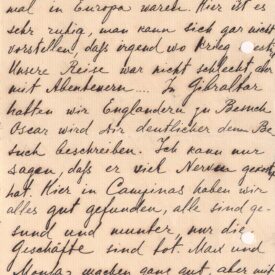 mal in Europa waren. Hier ist es
sehr ruhig, man kann sich gar nicht
vorstellen, daß irgend wo Krieg ist,
Unsere Reise war nicht schlecht
mit Abenteuern.... In Gibraltar
hatten wir Engländern zu Besuch
Oscar wird Dir deutlicher dem Be
such beschreiben. Ich kann nur
sagen, daß er viel Nerven
hat. Hier in Campinas haben wir
alles gut gefunden, alle sind ge-
sund und munter, nur die
Geschäfte sind tot. Max und
machen ganz gut, aber mit